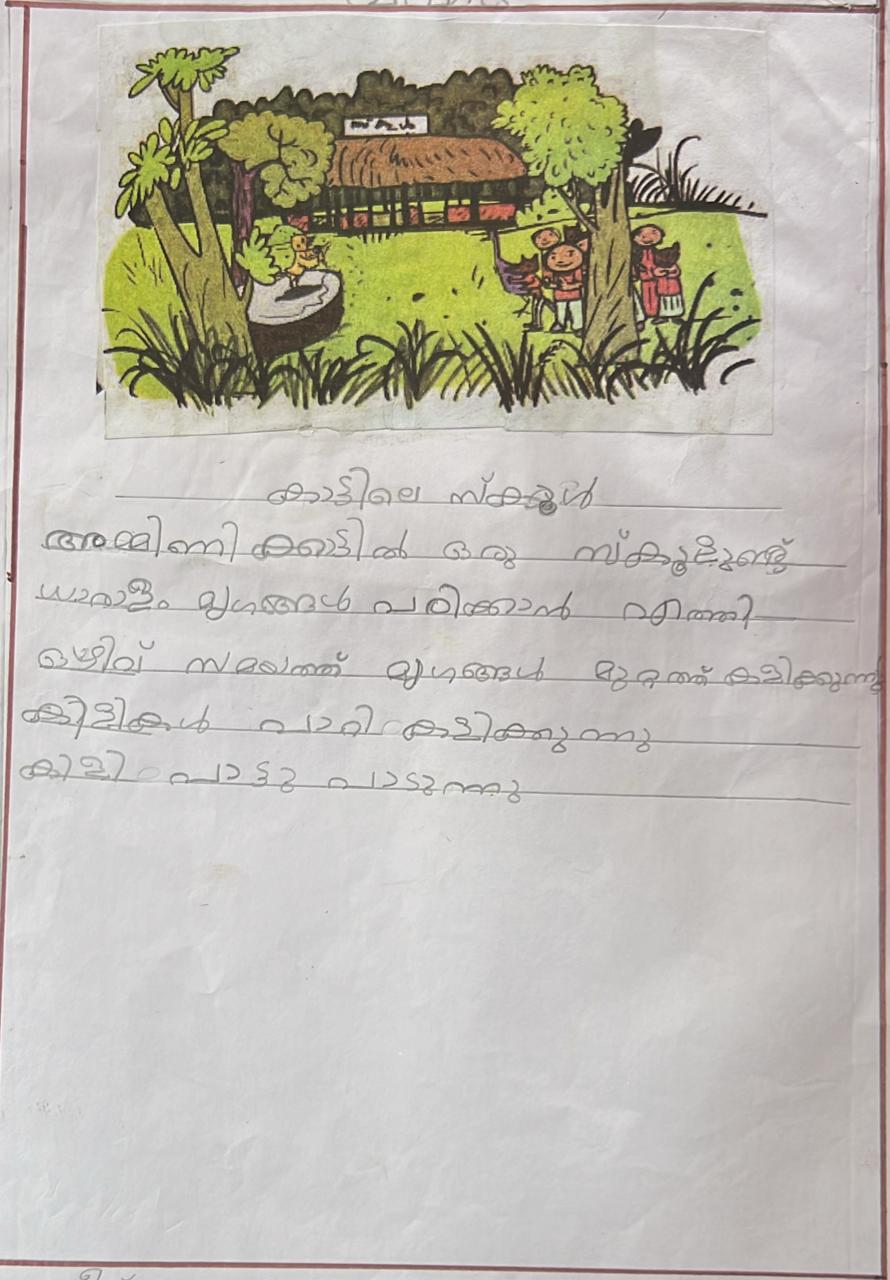 സ്കൂൾ
കാട്ടിലെ സ്കൂൾ
അമ്മിണി കാട്ടിൽ ഒരു സ്കൂളുണ്ട്
ധാരാളം മൃഗങ്ങൾ പഠിക്കാൻ എത്തി
ഒഴിവ് സമയത്ത് മൃഗങ്ങൾ മുറ്റത്ത് കളിക്കുന്നു
കിളികൾ പാറി കളിക്കുന്നു
കിളി പാട്ടു പാടുന്നു